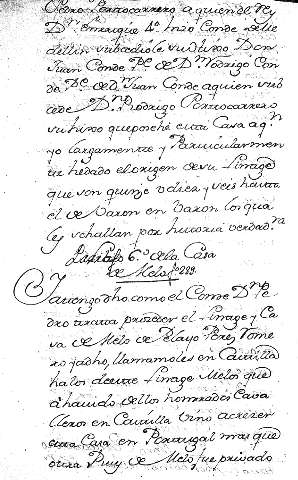 Pedro Portocarrero a quien el Rey
Dn. enrrique 4o. hizo Conde de Me
dellin subcediole su hijo Don
Juan Conde Pe. de Dn. Rodrigo Con
de Pe. de dn. Juan Conde a quien sub
cede Dn. Rodrigo Portocarrero
su hijo que posehe esta Casa aqn.
yo largamente y Particularmen
te he dado el origen de su Linage
que son quinze o diez y seis hasta
el de Varon en Varon los qua
les se hallan por historia verdada.
Parrafo 6o. de la Casa
de Melo fo. 289.
Ya tengo dho como el Conde Dn. Pe
dro trata proceder el Linage y Ca
sa de Melo de Pelayo Perez Rome
ro ya dho, llamamoles en Castilla
ha los de este Linage Melos que
a havido dellos honrrados Cava
lleros en Castilla vino a crezer
esta Casa en Portugal mas que
otra Ruy de Melo fue privado